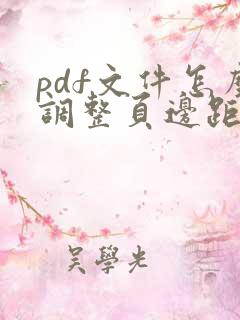 pdf文件怎麼
調整頁邊距
吳學光